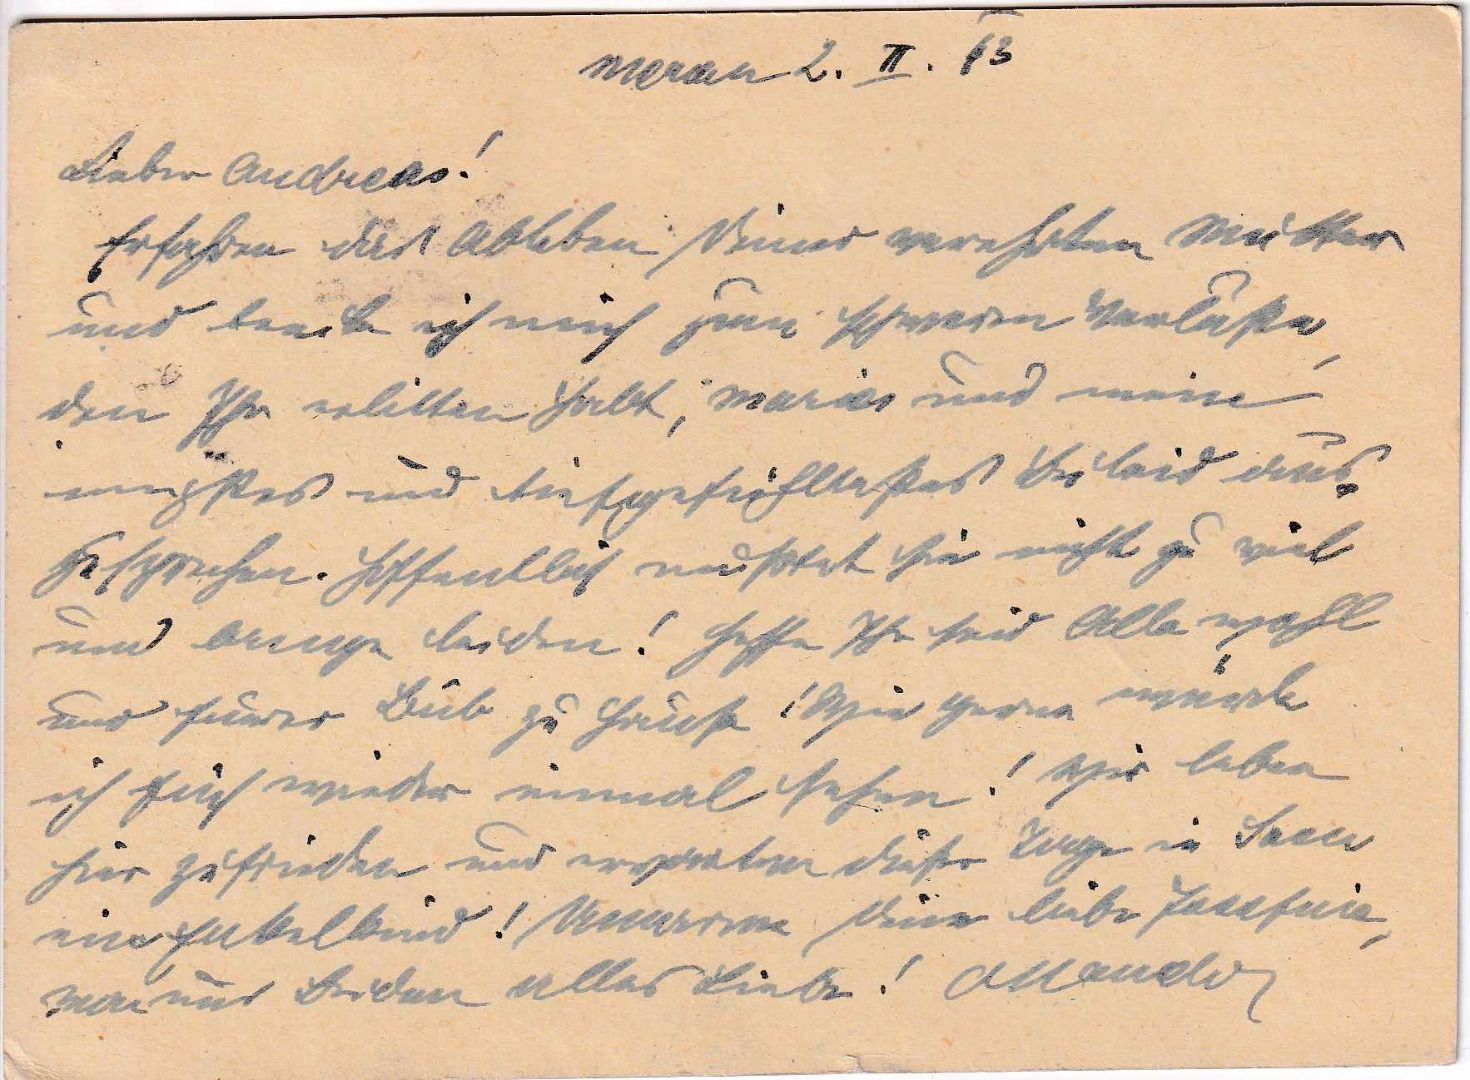 Meran 2. II. 43
Lieber Andreas!
Erfahren das Ableben Deiner verehrten Mutter
und beeile ich mich zum schweren Verluste,
den Ihr erlitten habt, Marias und meine
innigstes und tiefgefühltestes Beileid aus-
zusprechen. Hoffentlich mußtet Sie nicht zu viel
und lange leiden! Hoffe Ihr seid Alle wohl
und Euer Bub zu Hause! Wie gerne würde
ich Euch wieder einmal sehen! Wir leben
hier zufrieden und erwarten dieser Tage in
ein Enkelkind! Umarme Deine liebe
von uns Beiden alles Liebe!